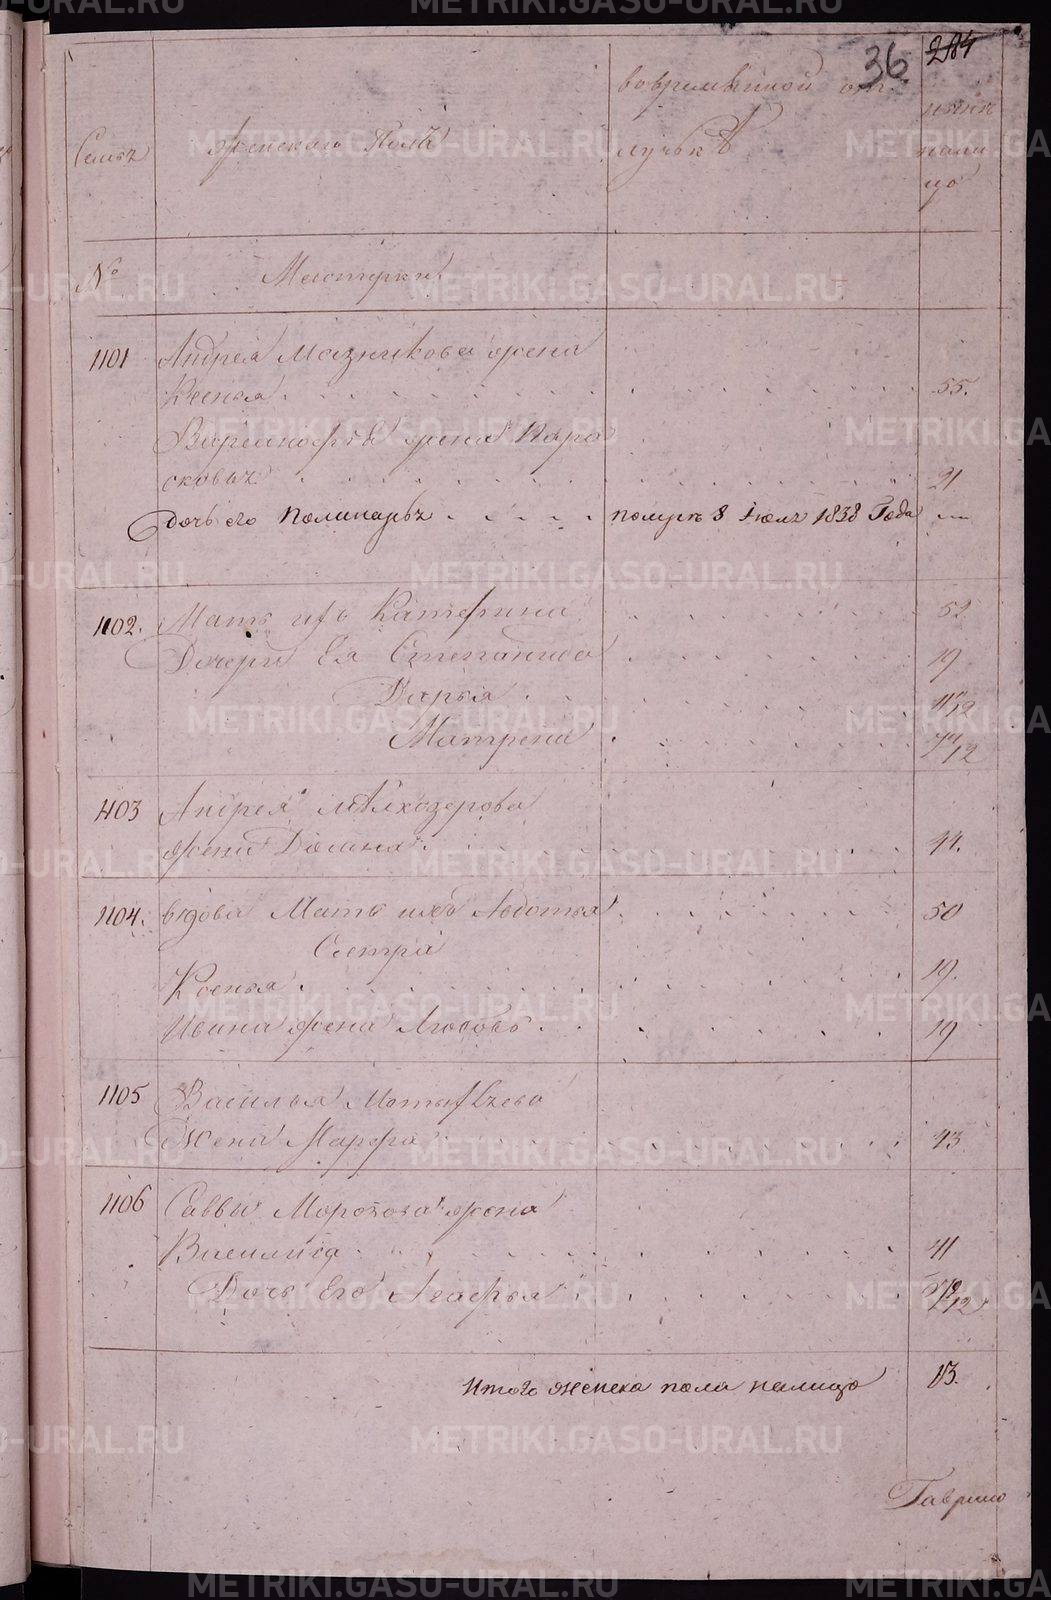 36 284
Семьъ
Женскаго Полъ
во временной от
лучькѣ
ныне
нали
цо
№
Мастерки
1101 Андрея Мазникова жена
Ксенья 55.
жена Пара
сковья 21
Дочь его Полинарья помре 8 Июля 1838 Года —
1102. Мать ихъ Катерина 52
Дочери Ея Степанида 19
Дарья 11/12
Матрена
1103 Андрея Мѣлкозерова
жена Домна 44.
1104. вдова Мать ихъ Авдотья 50
Сестра
Ксенья 19.
Ивана жена Любовь 19
1105 Василья Матвѣева
Жена Марфа 43
1106 Саввы Морозова жена
Василиса 41
Дочь Его Агафья
Итого женска пола налицо 13.
Гаврило
METRIKI.GASO-URAL.RU